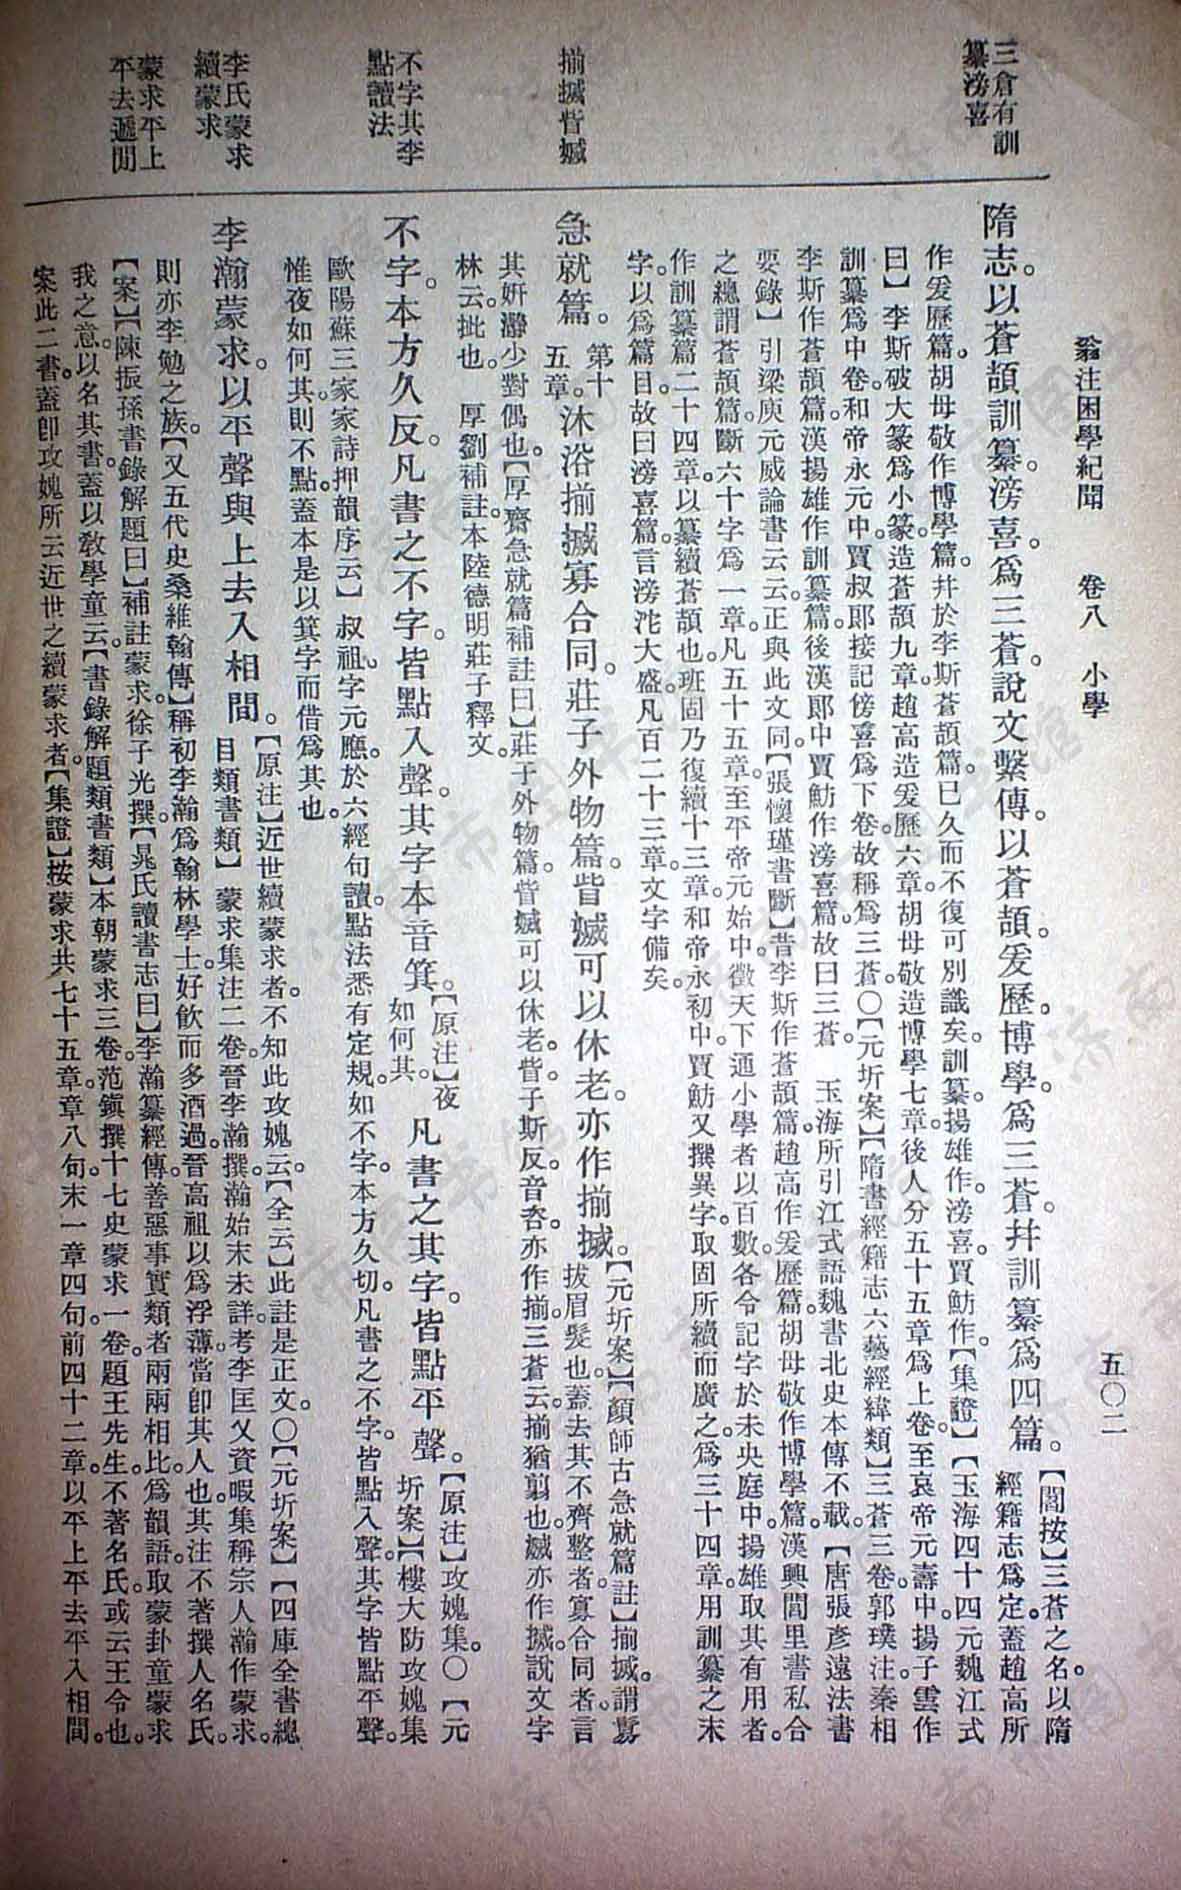 翁注困學紀聞　卷八　小學　五〇二
三倉有訓
纂滂喜
揃搣眥㓕
不字其李
點讀法
李氏蒙求
續蒙求
蒙求平上
平去遞間
隋志。以蒼頡訓纂滂喜。爲三蒼。說文繫傳。以蒼頡。爰歷。博學。爲三蒼。幷訓纂爲四篇。【閻按】三蒼之名。以隋
經籍志爲定。蓋趙高所
作爰歷篇。胡毋敬作博學篇。幷於李斯蒼頡篇。已久而不復可別識矣。訓纂。揚雄作。滂喜。賈魴作。【集證】【玉海四十四元魏江式
曰】李斯破大篆爲小篆。造蒼頡九章。趙高造爰歷六章。胡毋敬造博學七章。後人分五十五章爲上卷。至哀帝元壽中。揚子雲作
訓纂爲中卷。和帝永元中。賈叔郎接記傍喜爲下卷。故稱爲三蒼。〇【元圻案】【隋書經籍志六藝經緯類】三蒼三卷。郭璞注。秦相
李斯作蒼頡篇。漢揚雄作訓纂篇。後漢郞中賈魴作滂喜篇。故曰三蒼。　玉海所引江式語。魏書北史本傳不載。【唐張彥遠法書
要錄】引梁庾元威論書云云。正與此文同。【張懷瓘書斷】昔李斯作蒼頡篇。趙高作爰歷篇。胡毋敬作博學篇。漢興閭里書私合
之。總謂蒼頡篇。斷六十字爲一章。凡五十五章。至平帝元始中。徵天下通小學者以百數。各令記字於未央庭中。揚雄取其有用者。
作訓纂篇二十四章。以纂續蒼頡也。班固乃復續十三章。和帝永初中。賈魴又撰異字。取固所續而廣之。爲三十四章。用訓纂之末
字以爲篇目。故曰滂喜篇。言滂沱大盛。凡百二十三章。文字備矣。
急就篇。第十
五章。沐浴揃搣寡合同。莊子外物篇。眥㓕可以休老。亦作揃搣。【元圻案】【顏師古急就篇註】揃搣。謂鬄
拔眉髮也。蓋去其不齊整者。寡合同者。言
其姸瀞少對偶也。【厚齋急就篇補註曰】莊子外物篇。眥㓕可以休老。眥。子斯反。音咨。亦作揃。三蒼云。揃猶翦也。㓕亦作搣。說文字
林云。批也。　厚劉補註。本陸德明莊子釋文。
不字。本方久反。凡書之不字。皆點入聲。其字本音箕。【原注】夜
如何其。凡書之其字。皆點平聲。【原注】攻媿集。〇【元
圻案】【樓大防攻媿集
歐陽蘇三家家詩押韻序云】叔祖。字元應。於六經句讀點法。悉有定規。如不字。本方久切。凡書之不字。皆點入聲。其字皆點平聲。
惟夜如何其。則不點。蓋本是以箕字而借爲其也。
李瀚蒙求。以平聲與上去入相間。【原注】近世續蒙求者。不知此。攻媿云。【全云】此註是正文。〇【元圻案】【四庫全書總
目類書類】蒙求集注二卷。晉李瀚撰。瀚始末未詳。考李匡乂資暇集。稱宗人瀚作蒙求。
則亦李勉之族。【又五代史桑維翰傳】稱初李瀚爲翰林學士。好飲而多酒過。晉高祖以爲浮薄。當卽其人也。其注不著撰人名氏。
【案】【陳振孫書錄解題曰】補註蒙求。徐子光撰。【晁氏讀書志曰】李瀚纂經傳善惡事實類者。兩兩相比。爲韻語。取蒙卦童蒙求
我之意。以名其書。蓋以敎學童云。【書錄解題類書類】本朝蒙求三卷。范鎭撰。十七史蒙求一卷。題王先生。不著名氏。或云王令也。
案此二書。蓋卽攻媿所云近世之續蒙求者。【集證】按蒙求共七十五章。章八句。末一章四句。前四十二章。以平上平去平入相間。